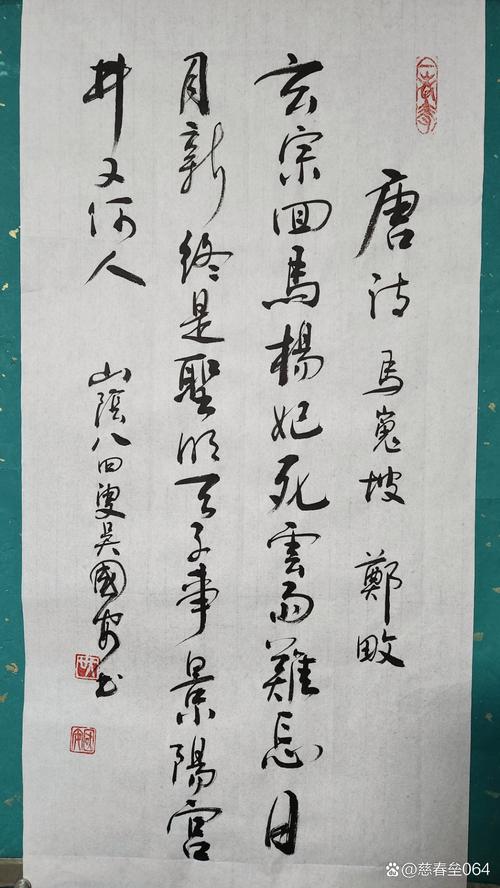 唐詩 馬嵬坡 鄭畋
玄宗回馬楊妃死雲雨難忘日
月新終是聖明天子事景陽宮
井又何人 山陰八四叟吳國安书
慈春垒064